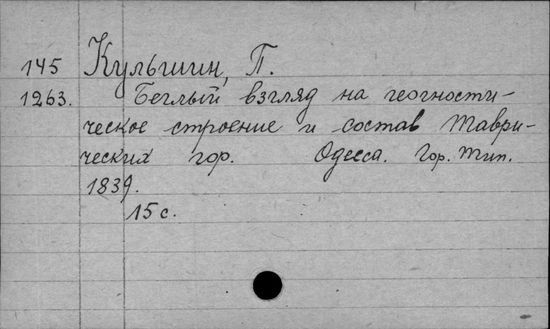 145 Кульшин, П.
1263. Беглый взгляд на геогности-
ческое строение и состав Таври-
ческих гор. Одесса. Гор. тип.
1839.
15 с.